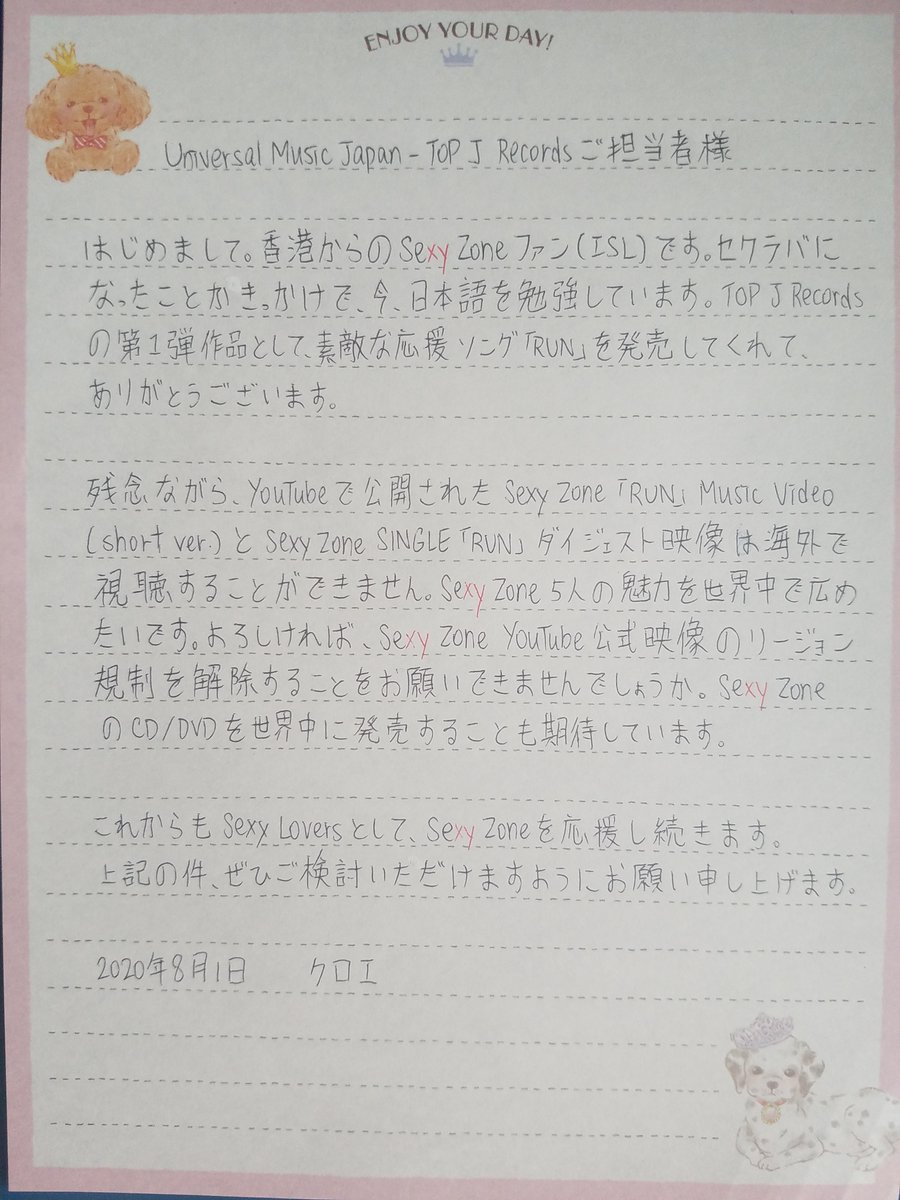 ENJOY YOUR DAY!
Universal Music Japan - TOP J Records ご担当者様
はじめまして。香港からの Sexy Zone ファン(ISL)です。セクラバに
なったことがきっかけで、今、日本語を勉強しています。TOP J Records
の第1弾作品として、素敵な応援ソング「RUN」を発売してくれて、
ありがとうございます。
残念ながら、YouTubeで公開された Sexy Zone「RUN」Music Video
(short ver.)と Sexy Zone SINGLE「RUN」ダイジェスト映像は海外で
視聴することができません。Sexy Zone 5人の魅力を世界中で広め
たいです。よろしければ、Sexy Zone YouTube 公式映像のリージョン
規制を解除することをお願いできませんでしょうか。Sexy Zone
のCD/DVDを世界中に発売することも期待しています。
これからも Sexy Loversとして、Sexy Zoneを応援し続きます。
上記の件、ぜひご検討いただけますようにお願い申し上げます。
2020年8月1日 クロエ